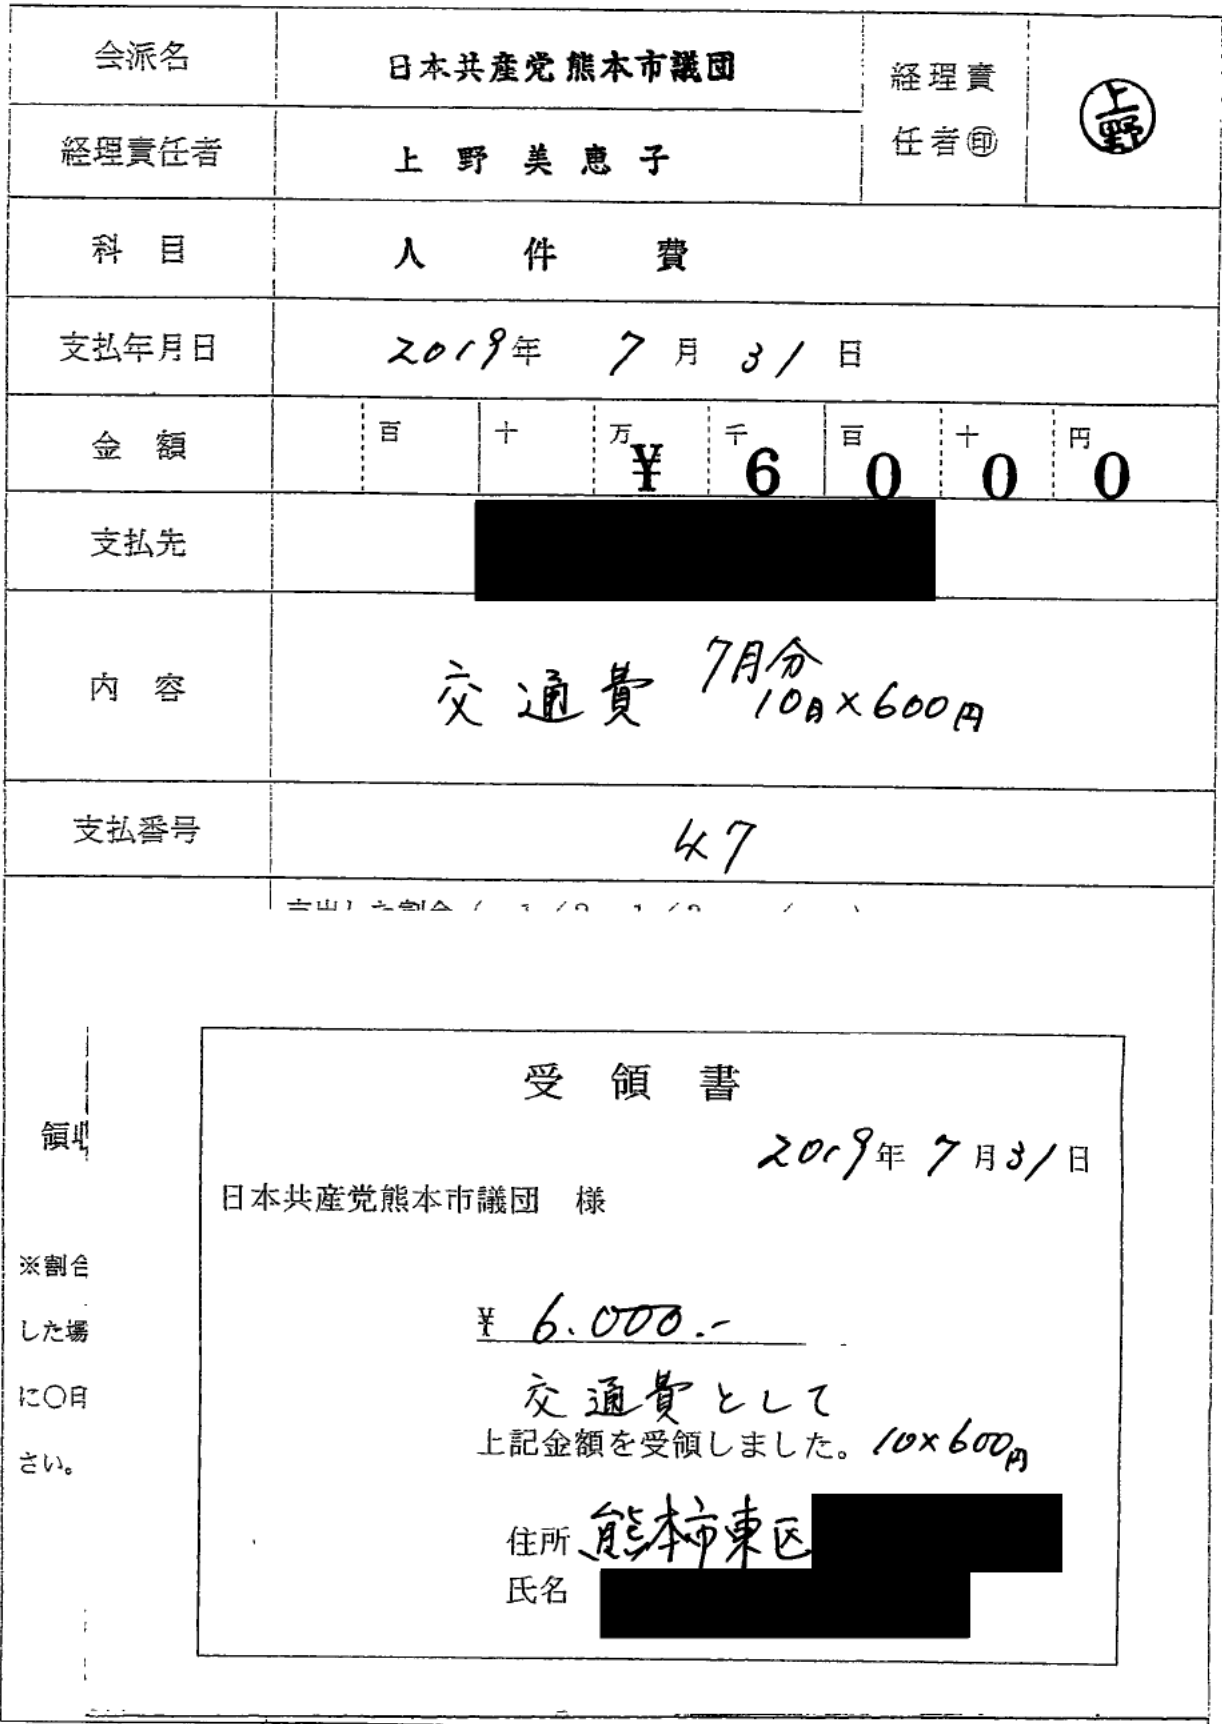 会派名 日本共産党熊本市議団 経理責任者㊞ 上野
経理責任者 上野美恵子
科目 人件費
支払年月日 2019年 7月 31日
金額 百 十 万 千 百 十 円
¥6000
支払先
内容 交通費 7月分
10日×600円
支払番号 47
支出した割合( 1/2 1/3 / )
受領書
2019年 7月31日
日本共産党熊本市議団 様
¥ 6.000.-
交通費として
上記金額を受領しました。 10×600円
住所 熊本市東区
氏名
領収
※割合
した場
に○印
さい。